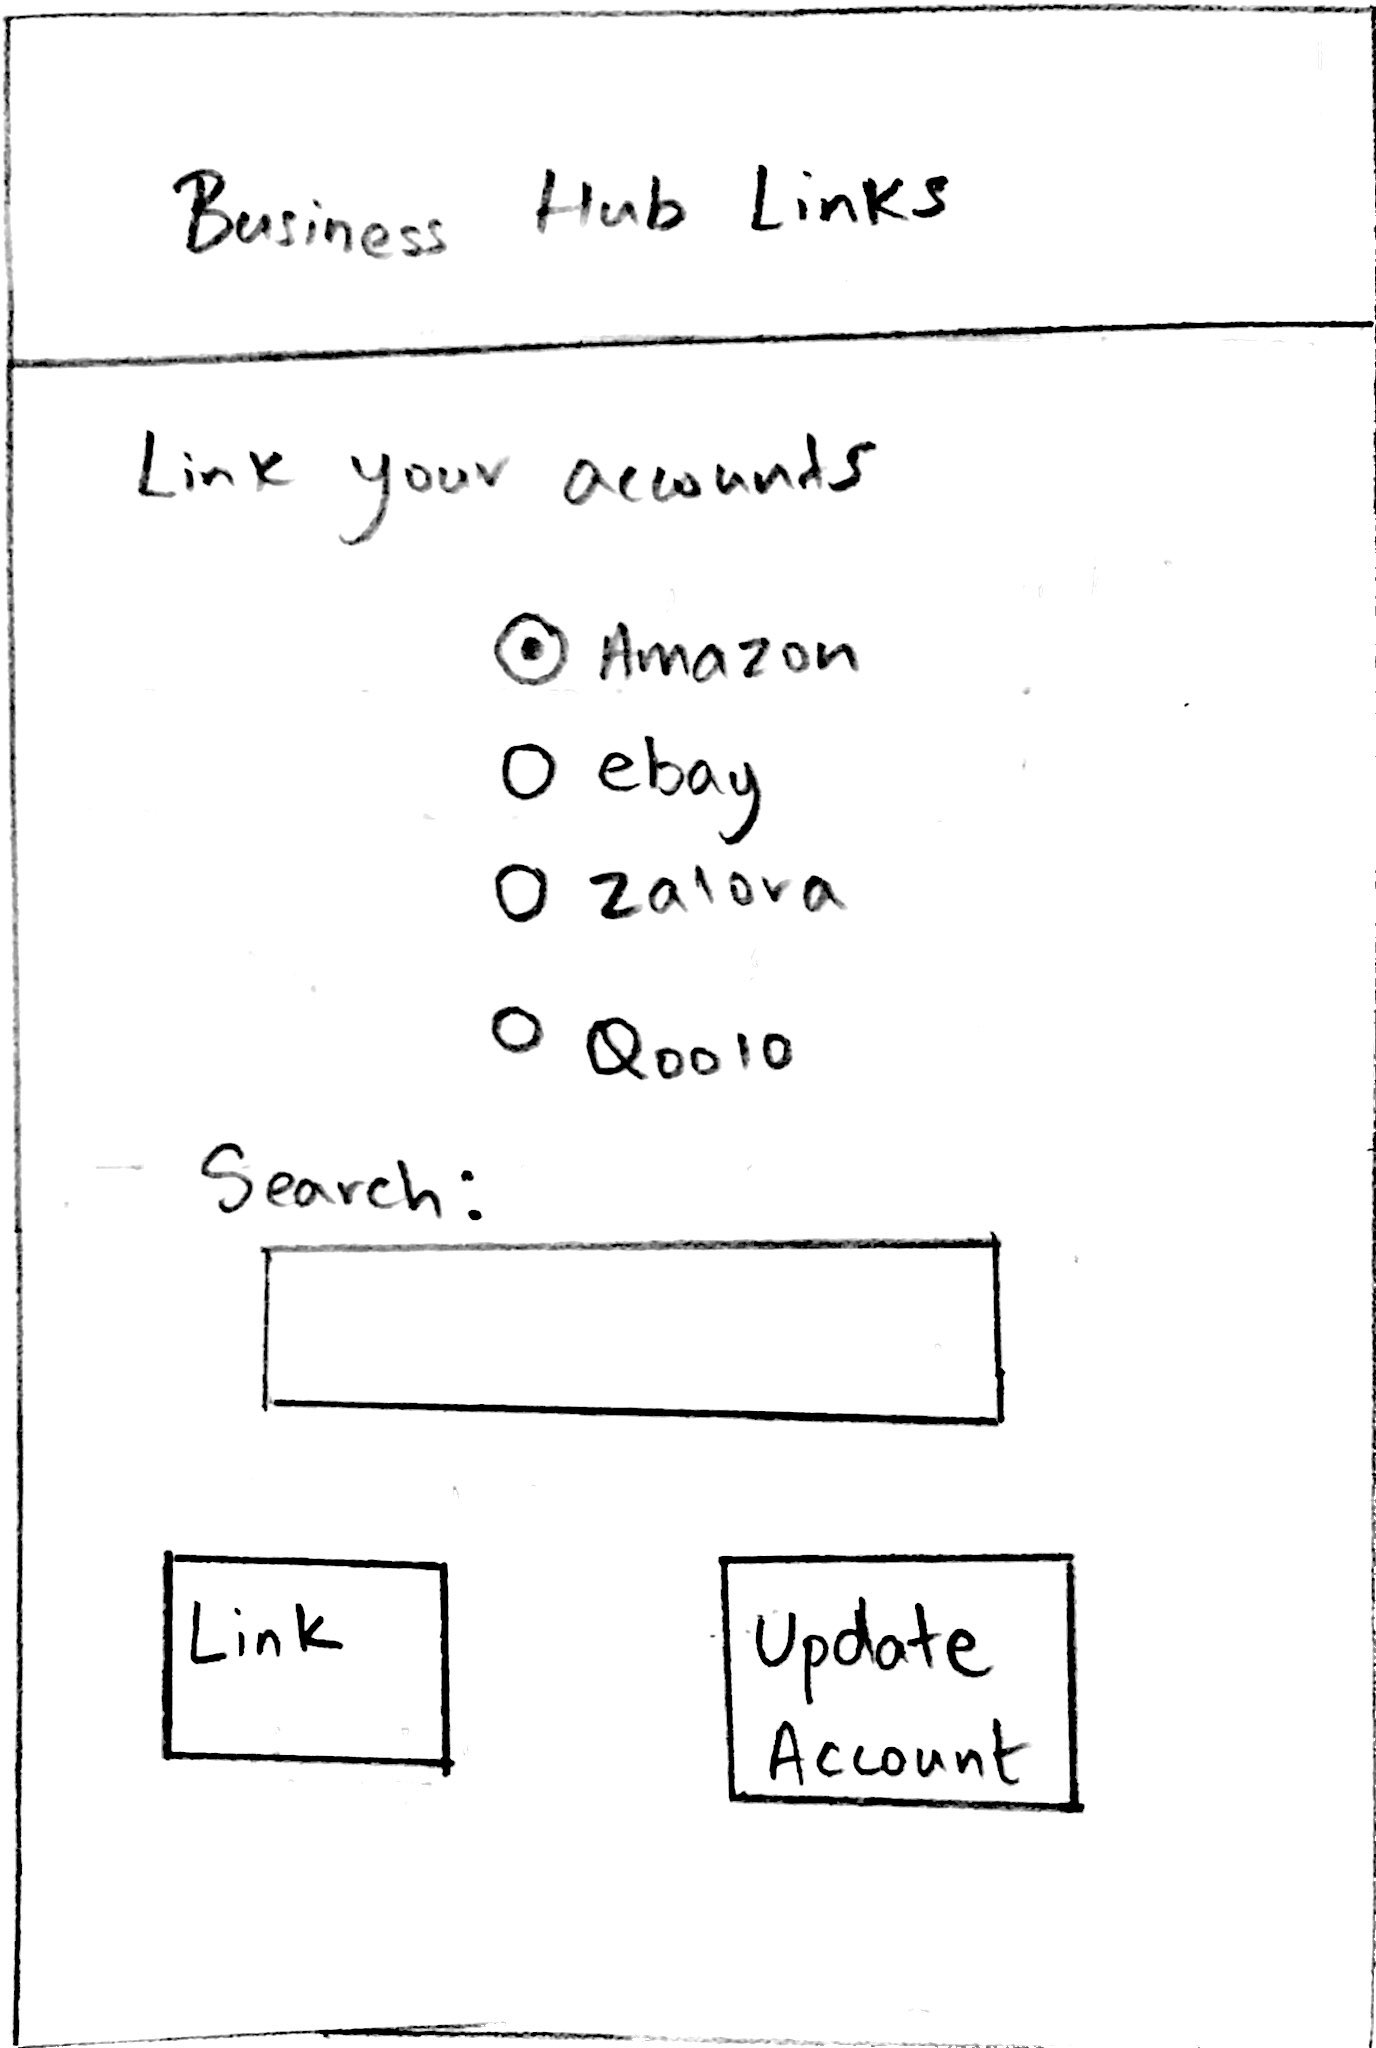 Business Hub Links
Link your accounts
Amazon
ebay
Zalora
Qoo10
Search:
Link
Update
Account